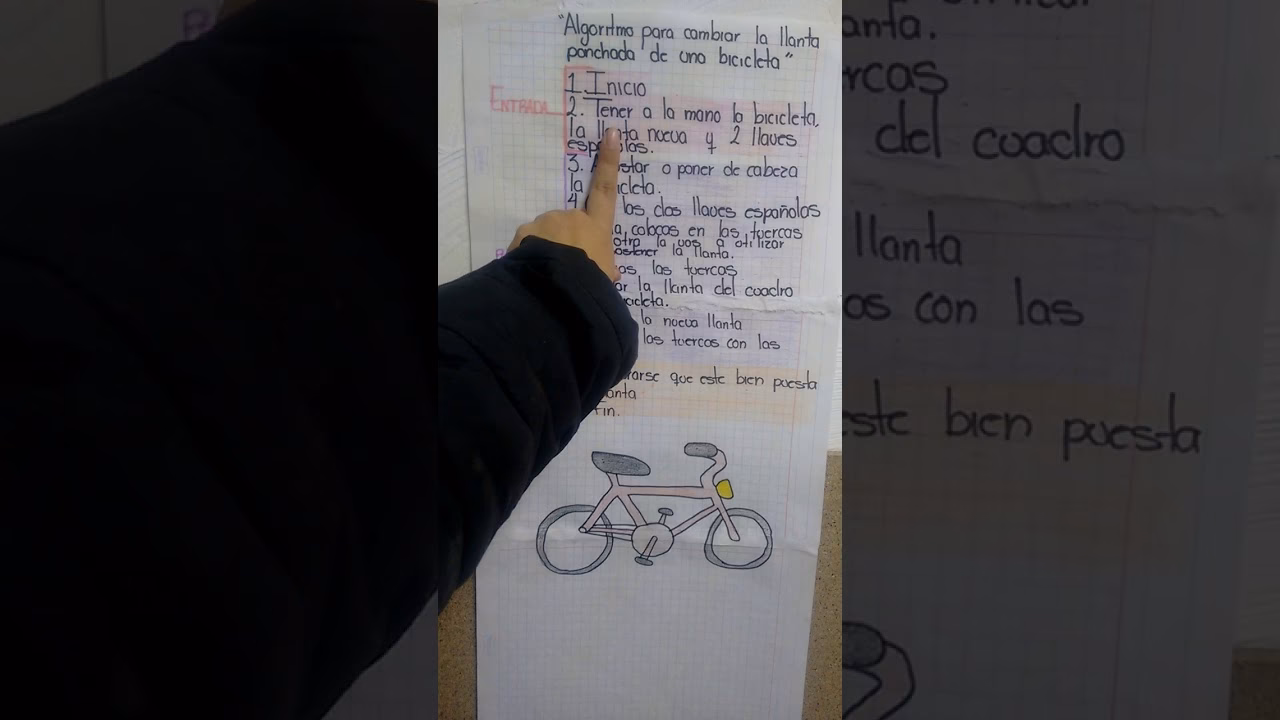 "Algoritmo para cambiar la llanta
ponchada de una bicicleta"
1. Inicio
ENTRADA
2. Tener a la mano la bicicleta,
la llanta nueva y 2 llaves
españolas.
3. Acostar o poner de cabeza
la bicicleta.
4 las dos llaves españolas
colocas en las tuercas
otra la vas a utilizar
sostener la llanta.
las tuercas
la llanta del cuadro
la nueva llanta
las tuercas con las
que este bien puesta
llanta
Fin.
anta.
rcas
del cuadro
llanta
os con las
este bien puesta